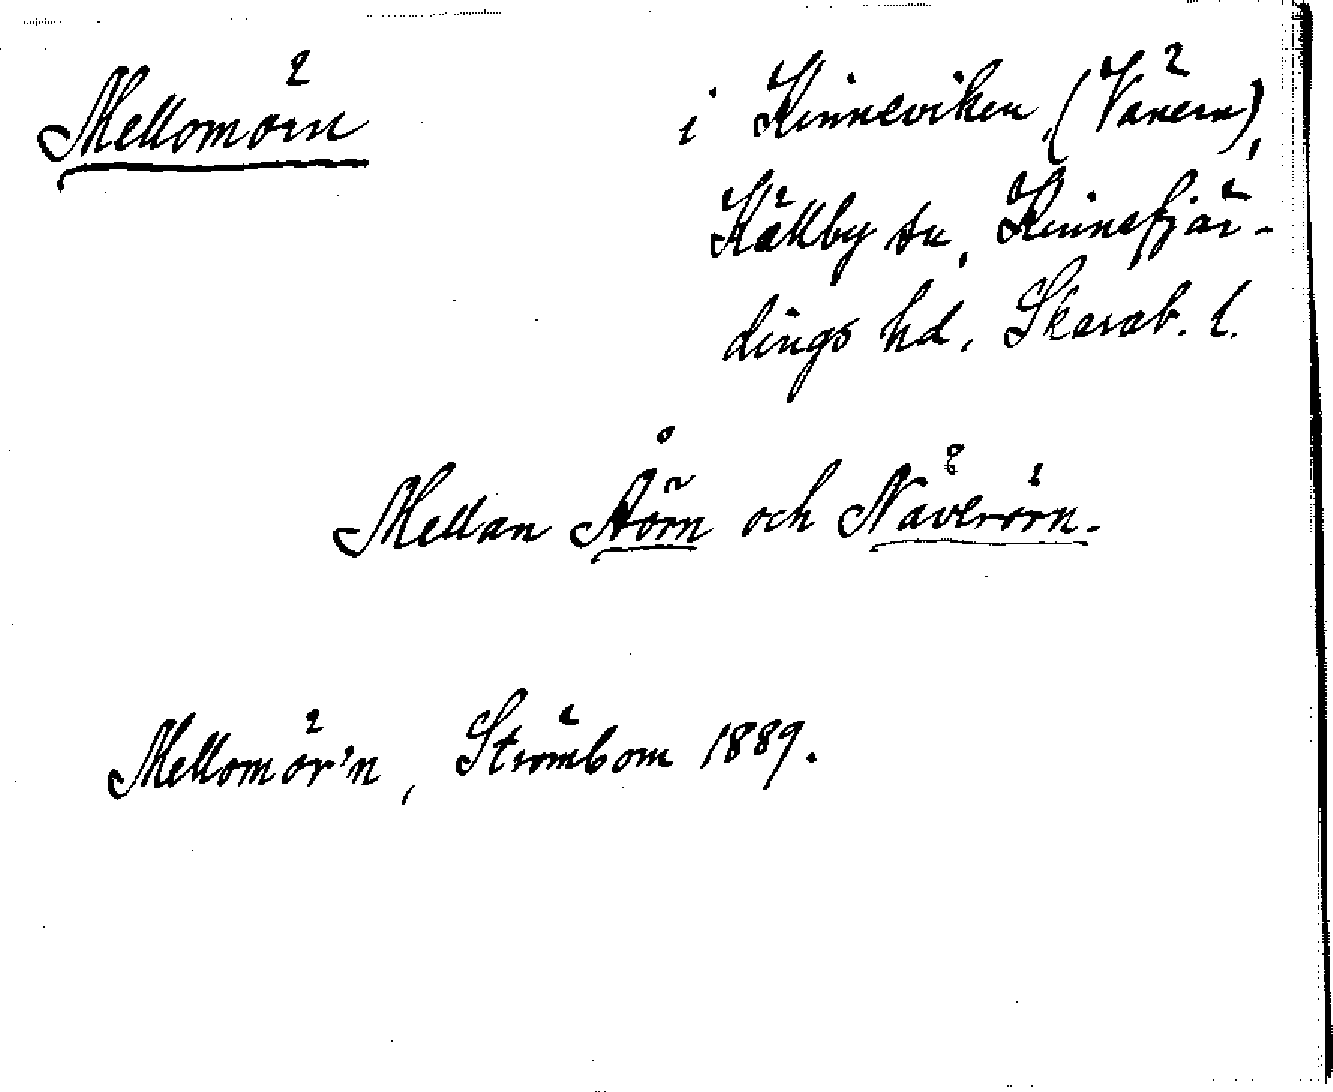 Mellomörn
i Kinneviken (Vänern),
Källby sn, Kinnefjär-
dings hd, Skarab. l.
Mellan Åörn och Näverörn.
Mellomör'n, Strömbom 1889.